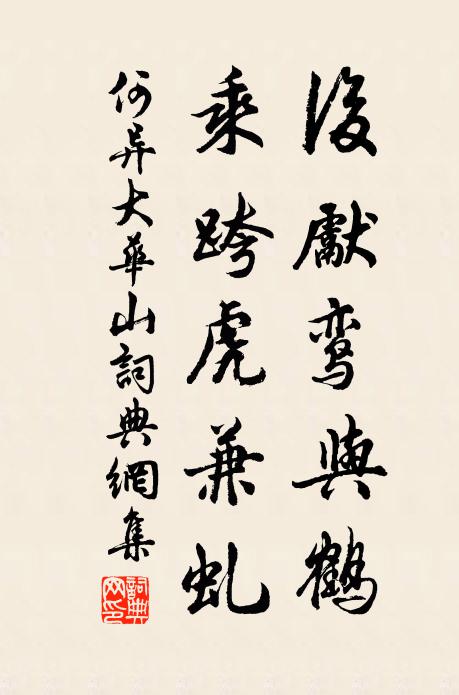 後獻鸾與鶴
乘跨虎兼虬
何异大華山詞典網集
詞典网印